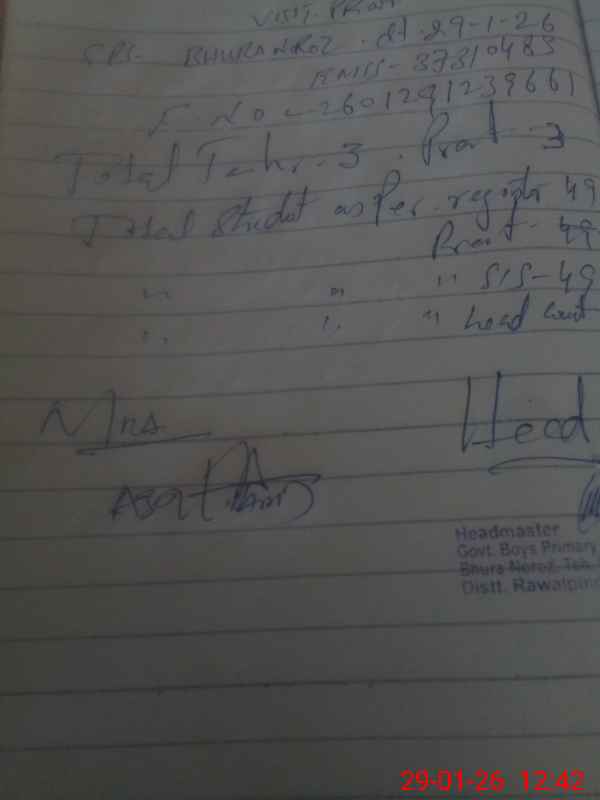 VISIT. Proof
GPS. BHURANROZ. dt. 29-1-26
EMIS - 37310483
F. NO - 2601291239661
Total Tchr. 3. Prost. 3
Total Student as Per. register 49
Prost - 49
" " " SIS - 49
" " " head count
Mna. Head
Headmaster
Govt. Boys Primary
Bhura Noroz. Teh.
Distt. Rawalpin
29-01-26 12:42